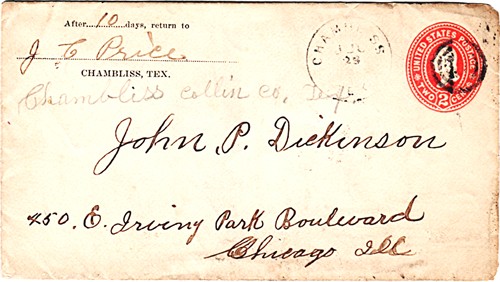 After 10 days, return to
J C Price
CHAMBLISS, TEX.
Chambliss Collin Co, Tex
CHAMBLISS
UNITED STATES POSTAGE
TWO 2 CENTS
John, P. Dickinson
450. E. Irving Park Bouleward
Chicago Ill